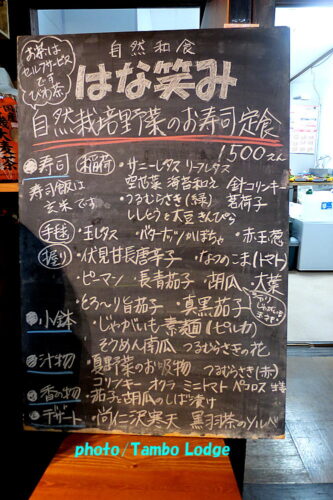 お茶は
セルフサービス
です
びわ茶
自然和食
はな笑み
自然栽培野菜のお寿司定食
1500えん
寿司 稲荷 ・サニーレタス リーフレタス
空芯菜 海苔和え 針コリンキー
寿司飯は
玄米です
・つるむらさき(緑) 茗荷子
ししとうと大豆きんぴら
手毬 ・玉レタス ・バターナッツかぼちゃ ・赤玉葱
握り ・伏見甘長唐辛子 ・なつのこま(トマト)
・ピーマン ・長青茄子 ・胡瓜 ・大葉
・とろ〜り旨茄子 ・真黒茄子
小鉢 ・じゃがいも素麺(ピルカ)
そうめん南瓜 つるむらさきの花
汁物 ・夏野菜のお吸物 つるむらさき(赤)
コリンキー オクラ ミニトマト ペコロス
香の物 ・茄子と胡瓜のしば漬け
デザート ・尚仁沢寒天 黒羽茶のソルベ
photo/Tambo Lodge